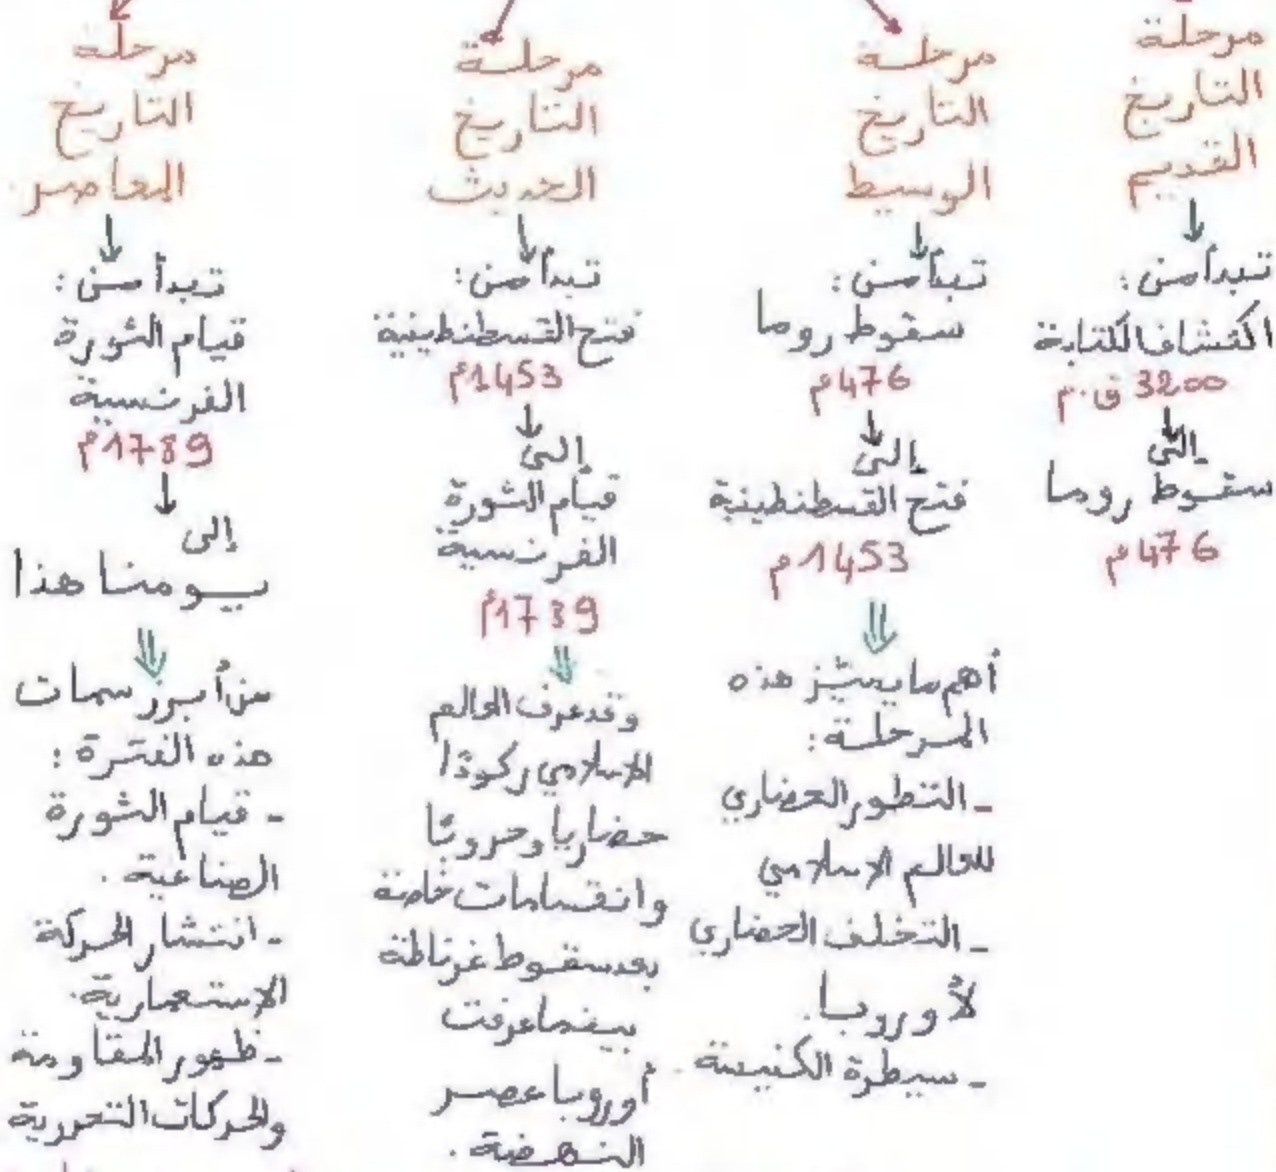 مرحلة
التاريخ
القديم
تبدأ من:
اكتشاف الكتابة
3200 ق.م
إلى
سقوط روما
476م
مرحلة
التاريخ
الوسيط
تبدأ من:
سقوط روما
476م
إلى
فتح القسطنطينية
1453م
أهم ما يميز هذه
المرحلة:
- التطور الحضاري
للعالم الإسلامي
- التخلف الحضاري
لأوروبا.
- سيطرة الكنيسة.
مرحلة
التاريخ
الحديث
تبدأ من:
فتح القسطنطينية
1453م
إلى
قيام الثورة
الفرنسية
1739م
وقد عرف العالم
الإسلامي ركودًا
حضاريا وحروبًا
وانقسامات خاصة
بعد سقوط غرناطة
بينما عرفت
أوروبا عصر
النهضة.
مرحلة
التاريخ
المعاصر
تبدأ من:
قيام الثورة
الفرنسية
1789م
إلى
يومنا هذا
من أبرز سمات
هذه الفترة:
- قيام الثورة
الصناعية.
- انتشار الحركة
الاستعمارية.
- ظهور المقاومة
والحركات التحررية